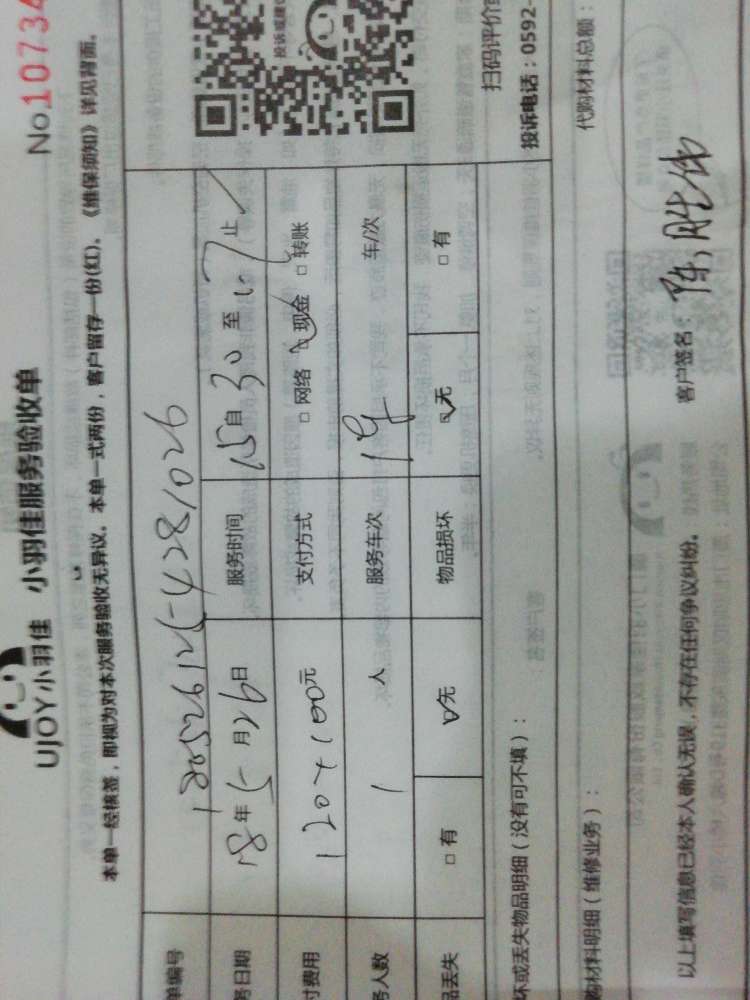 No.1073
UJOY小羽佳 小羽佳服务验收单
本单一经核签，即视为对本次服务验收无异议。本单一式两份，客户留存一份(红)。《维保须知》详见背面。
单编号
务日期 18年5月26日 服务时间 15自30至17止
付费用 120+100元 支付方式 □网络 现金 □转账
务人数 1 人 服务车次 1 车/次
品丢失 □有 无 物品损坏 无 □有
扫码评价
投诉电话：0592-
坏或丢失物品明细（没有可不填）：
购材料明细（维修业务）： 代购材料总额：
以上填写信息已经本人确认无误，不存在任何争议纠纷。 客户签名：陈胜伟